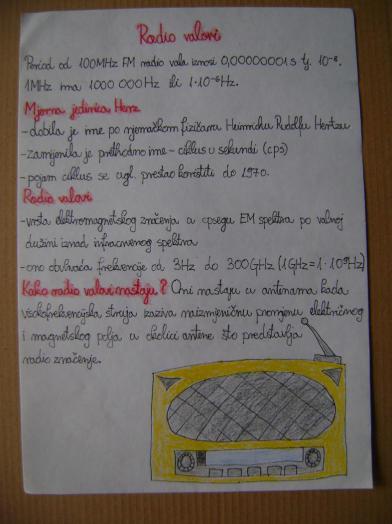 Radio valovi
Period od 100MHz FM radio vala iznosi 0,00000001s tj. 10⁻⁸.
1MHz ima 1000 000Hz ili 1·10⁻⁶Hz.
Mjerna jedinica Herz
-dobila je ime po njemačkom fizičaru Heinrichu Rudolfu Hertzu
-zamijenila je prethodno ime - ciklus u sekundi (cps)
-pojam ciklus se ugl. prestao koristiti do 1970.
Radio valovi
-vrsta elektromagnetskog značenja u opsegu EM spektra po valnoj
dužini iznad infracrvenog spektra
-ono obuhvaća frekvencije od 3Hz do 300GHz (1GHz=1·10⁹Hz)
Kako radio valovi nastaju? Oni nastaju u antinama kada
visokofrekvencijska struja izaziva naizmjeničnu promjenu električnog
i magnetskog polja u okolici antene što predstavlja
radio značenje.